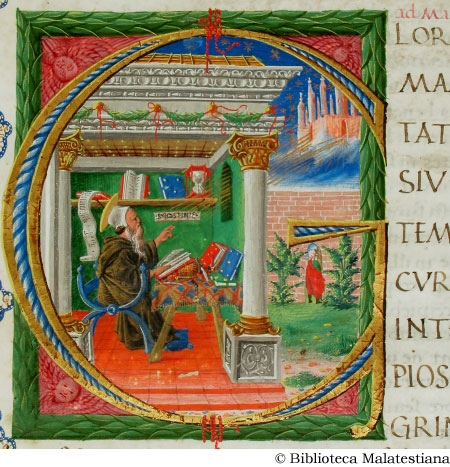 ad Ma
G
LOR
MA
TAT
SIV
TEM
CVR
INT
PIOS
GRIN
© Biblioteca Malatestiana